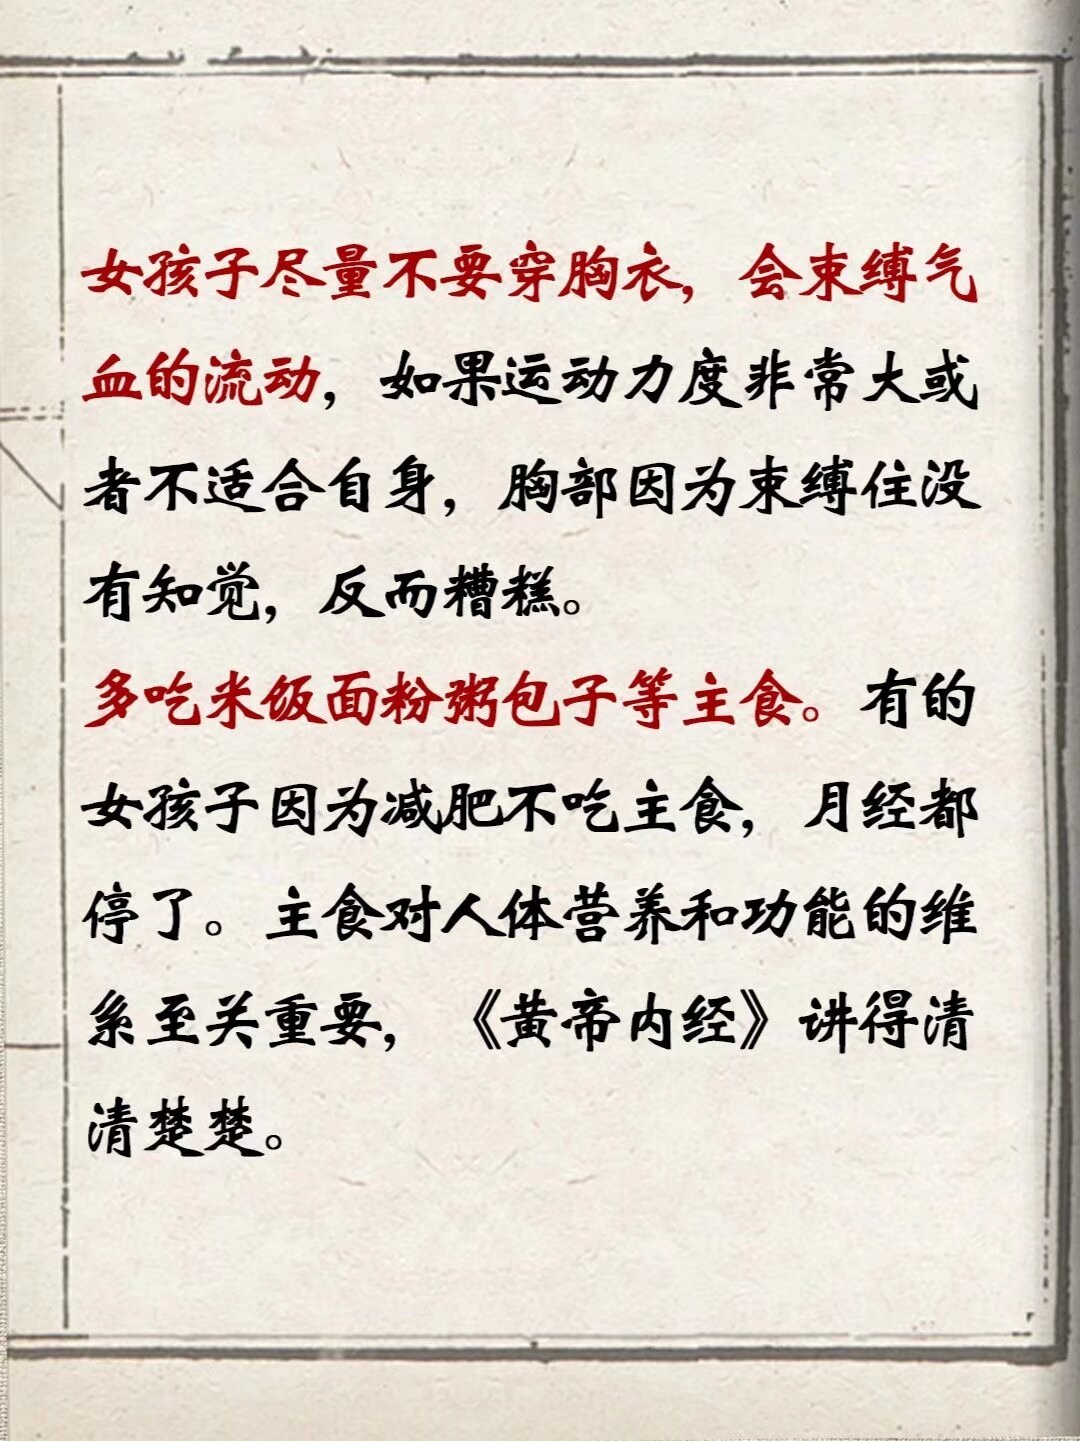 女孩子尽量不要穿胸衣，会束缚气
血的流动，如果运动力度非常大或
者不适合自身，胸部因为束缚住没
有知觉，反而糟糕。
多吃米饭面粉粥包子等主食。有的
女孩子因为减肥不吃主食，月经都
停了。主食对人体营养和功能的维
系至关重要，《黄帝内经》讲得清
清楚楚。